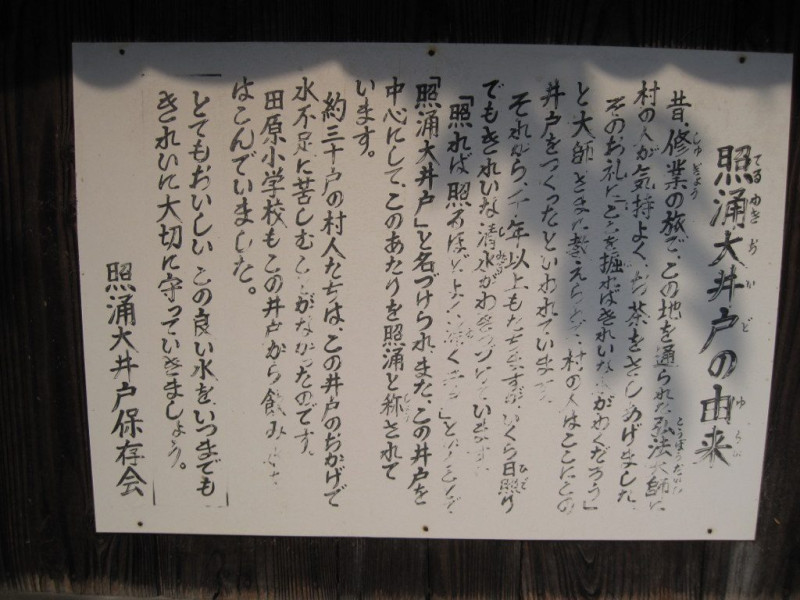 照涌大井戸の由来
昔、修業の旅で、この地を通られた弘法大師に
村の人が気持よく、お茶をさしあげました。
そのお礼に「ここを掘ればきれいな水がわくだろう」
と大師さまが教えられて、村の人はここにこの
井戸をつくったといわれています。
それから、千年以上もたちますが、いくら日照り
でもきれいな清水がわきつづけています。
「照れば照るほどよく涌く
「照涌大井戸」と名づけられ、また、この井戸を
中心にして、このあたりを照涌と称されて
います。
約三十戸の村人たちは、この井戸のおかげで
水不足に苦しむことがなかったのです。
田原小学校もこの井戸から飲み
はこんでいました。
とてもおいしいこの良い水を、いつまでも
きれいに大切に守っていきましょう。
照涌大井戸保存会